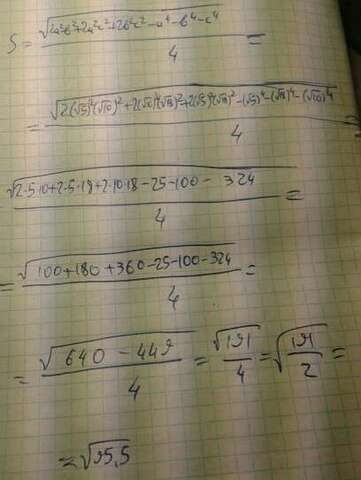 S = √(2a²b²+2a²c²+2b²c²-a⁴-b⁴-c⁴) / 4 =
= √(2(√5)²(√10)²+2(√5)²(√18)²+2(√10)²(√18)²-(√5)⁴-(√18)⁴-(√10)⁴) / 4
√(2·5·10+2·5·18+2·10·18-25-100-324) / 4 =
= √(100+180+360-25-100-324) / 4 =
= √(640-449) / 4 = √191 / 4 = √(191 / 2) =
= √95,5